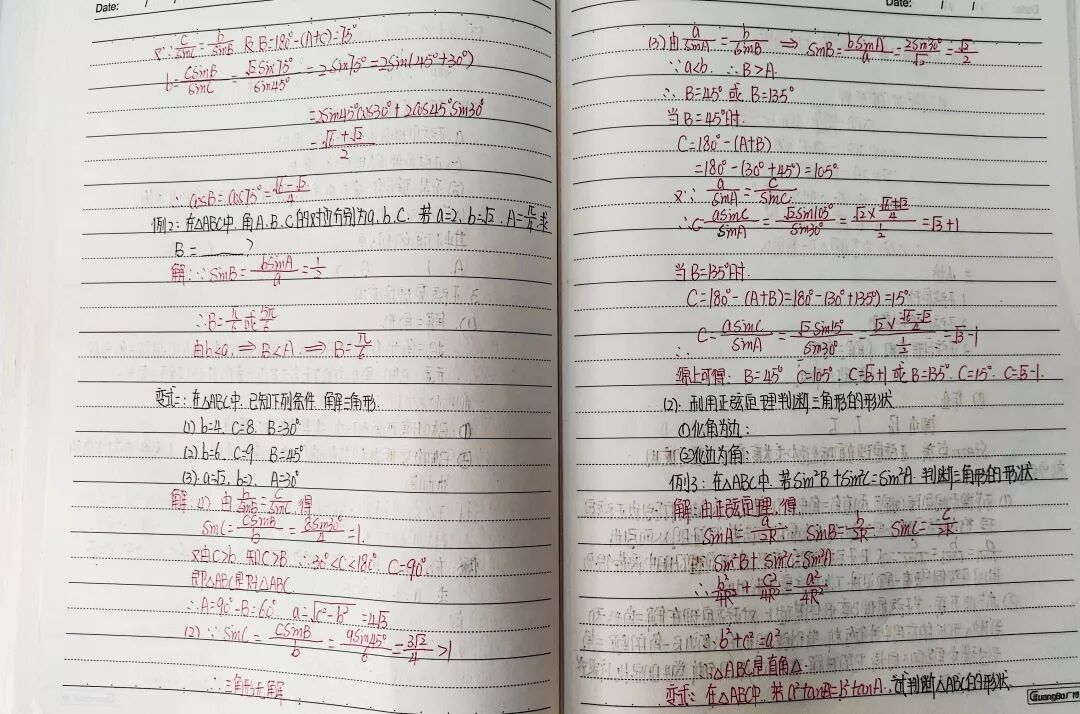 Date: / /
又∵ c/sinC = b/sinB 及 B=180°-(A+C)=75°
b = csinB/sinC = √2sin75°/sin45° = 2sin75° = 2sin(45°+30°)
=2sin45°cos30°+2cos45°sin30°
= (√6+√2)/2
∴ cosB=cos75°=(√6-√2)/4
例2: 在△ABC中. 角A.B.C的对边分别为a.b.c. 若a=2. b=√2. A=π/4. 求
B = ____?
解: ∵ sinB = bsinA/a = 1/2
∴B=π/6 或 5π/6
由b<a. ⇒ B<A. ⇒ B=π/6
变式二: 在△ABC中. 已知下列条件. 解三角形.
(1) b=4. c=8. B=30°
(2) b=6. c=9. B=45°
(3) a=√2. b=2. A=30°
解: (1) 由 b/sinB = c/sinC. 得
sinC = csinB/b = 8sin30°/4 = 1.
又由c>b 知C>B ∴30°<C<180°. C=90°
即△ABC是Rt△ABC.
∴A=90°-B=60°. a=√(c²-b²)=4√3
(2) ∵ sinC = csinB/b = 9sin45°/6 = 3√2/4 >1
∴三角形无解
Date: / /
(3) 由 a/sinA = b/sinB ⇒ sinB = bsinA/a = 2sin30°/√2 = √2/2
∵a<b. ∴B>A.
∴ B=45° 或 B=135°
当B=45°时.
C=180°-(A+B)
=180°-(30°+45°)=105°
又∵ a/sinA = c/sinC.
∴C = asinC/sinA = √2sin105°/sin30° = (√2×(√6+√2)/4)/(1/2) = √3+1
当B=135°时.
C=180°-(A+B)=180°-(30°+135°)=15°
∴ C = asinC/sinA = √2sin15°/sin30° = (√2×(√6-√2)/4)/(1/2) = √3-1
综上可得: B=45° C=105°. C=√3+1 或 B=135°. C=15°. C=√3-1.
(2). 利用正弦定理判断三角形的形状
①化角为边:
②化边为角:
例3: 在△ABC中. 若sin²B+sin²C=sin²A. 判断三角形的形状.
解: 由正弦定理. 得.
sinA = a/2R. sinB = b/2R. sinC = c/2R.
即 sin²B+sin²C=sin²A
∴ b²/4R² + c²/4R² = a²/4R²
∴ b²+c²=a²
∴△ABC是直角△.
变式: 在△ABC中. 若a²tanB=b²tanA. 试判断△ABC的形状.
GuangBo广博